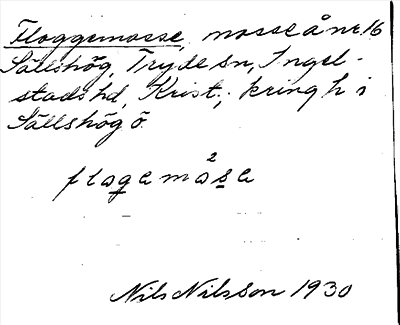 Floggemosse, mosse å nr. 16
Sällshög, Tryde sn, Ingel-
stads hd, Krist.; kring h i
Sällshög ö.
flogemo²se
Nils Nilsson 1930